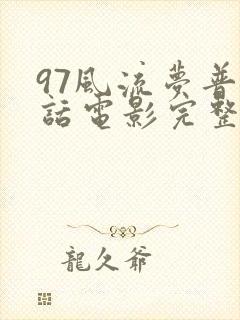 97風流夢普
話電影完整
龍久爺